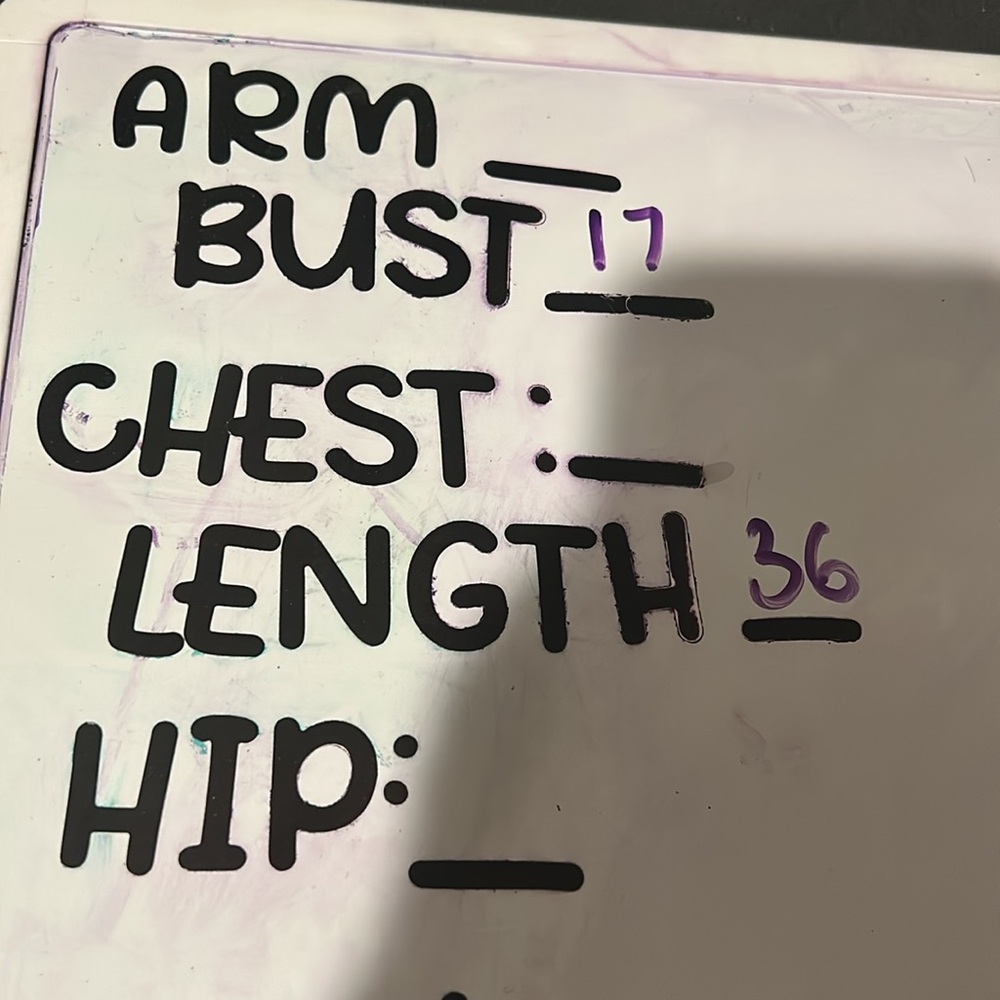 ARM __
BUST 17
CHEST: __
LENGTH 36
HIP: __